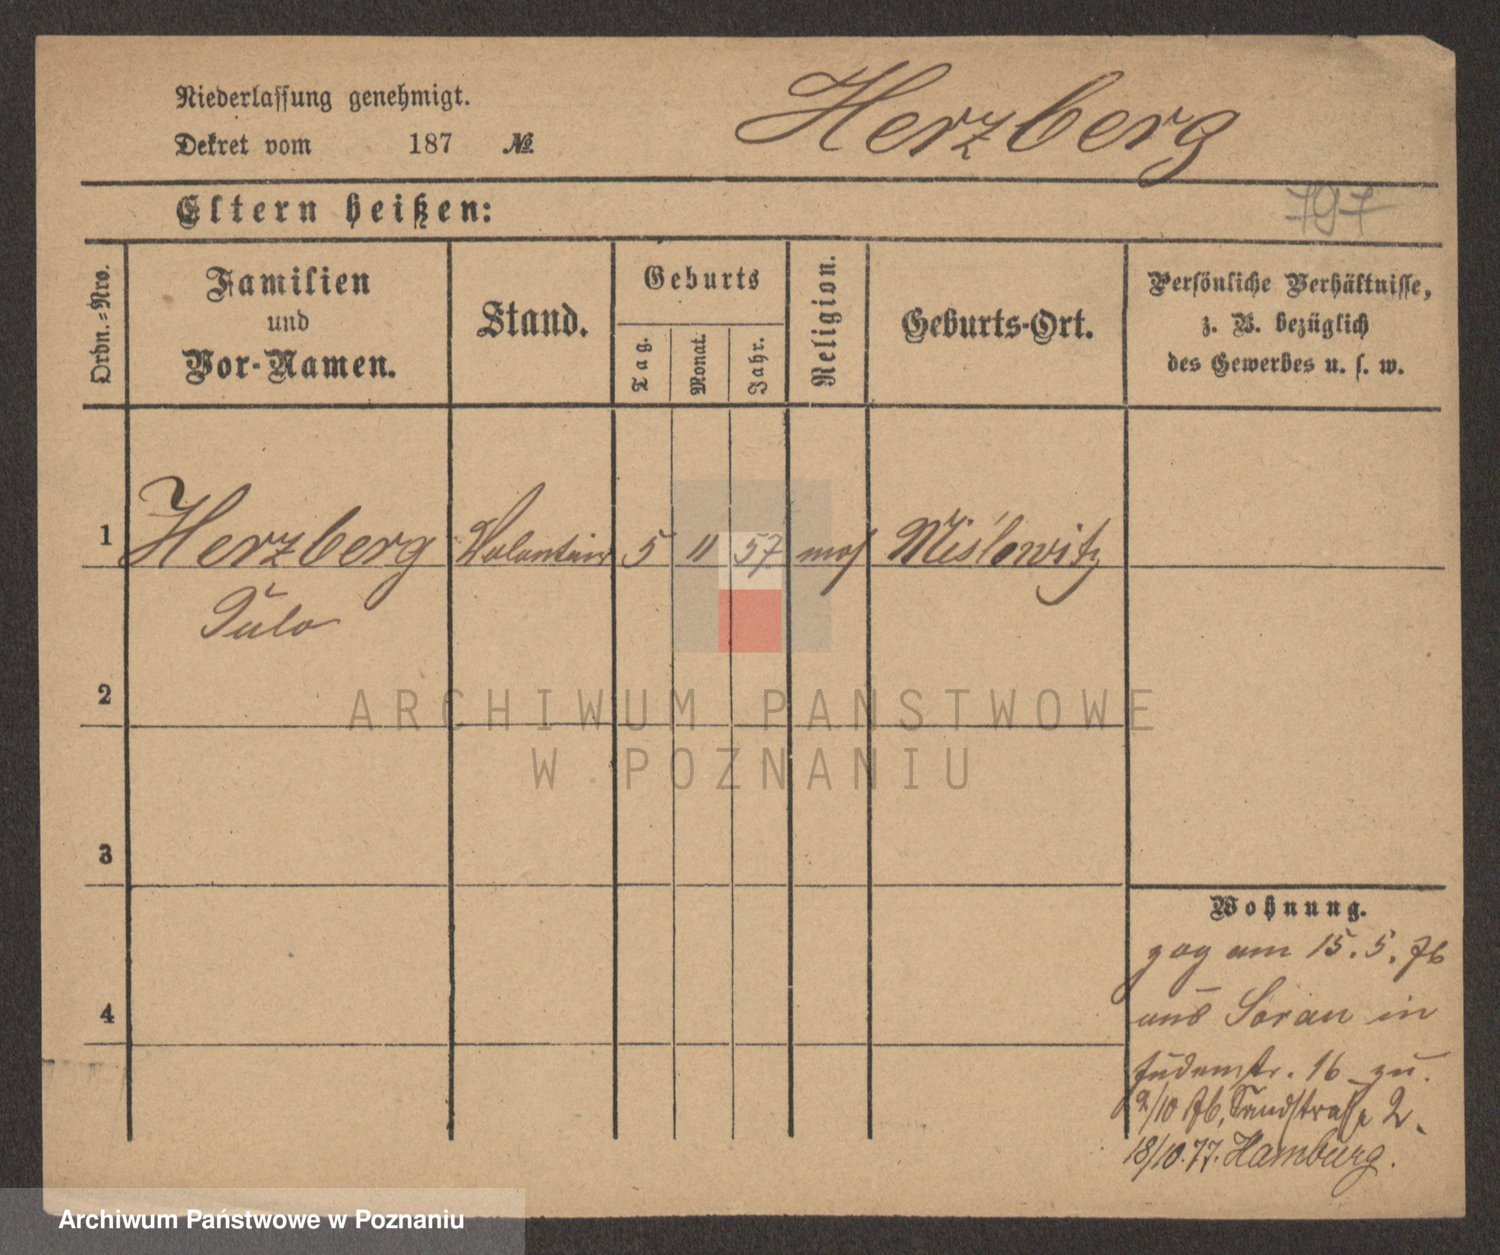 Niederlassung genehmigt.
Dekret vom 187 №
Herzberg
797
Eltern heißen:
Ordn.-Nro.
Familien
und
Vor-Namen.
Stand.
Geburts
Tag.
Monat.
Jahr.
Religion.
Geburts-Ort.
Persönliche Verhältnisse,
z. B. bezüglich
des Gewerbes u. s. w.
1 Herzberg Volontair 5 11 57 mos Mislowitz
2
3
4
Wohnung.
zog am 15. 5. 76
aus Soran in
Judenstr. 16 zu.
2/10 76, Sandstrasse 2.
18/10. 77. Hamburg.
ARCHIWUM PAŃSTWOWE
W POZNANIU
Archiwum Państwowe w Poznaniu